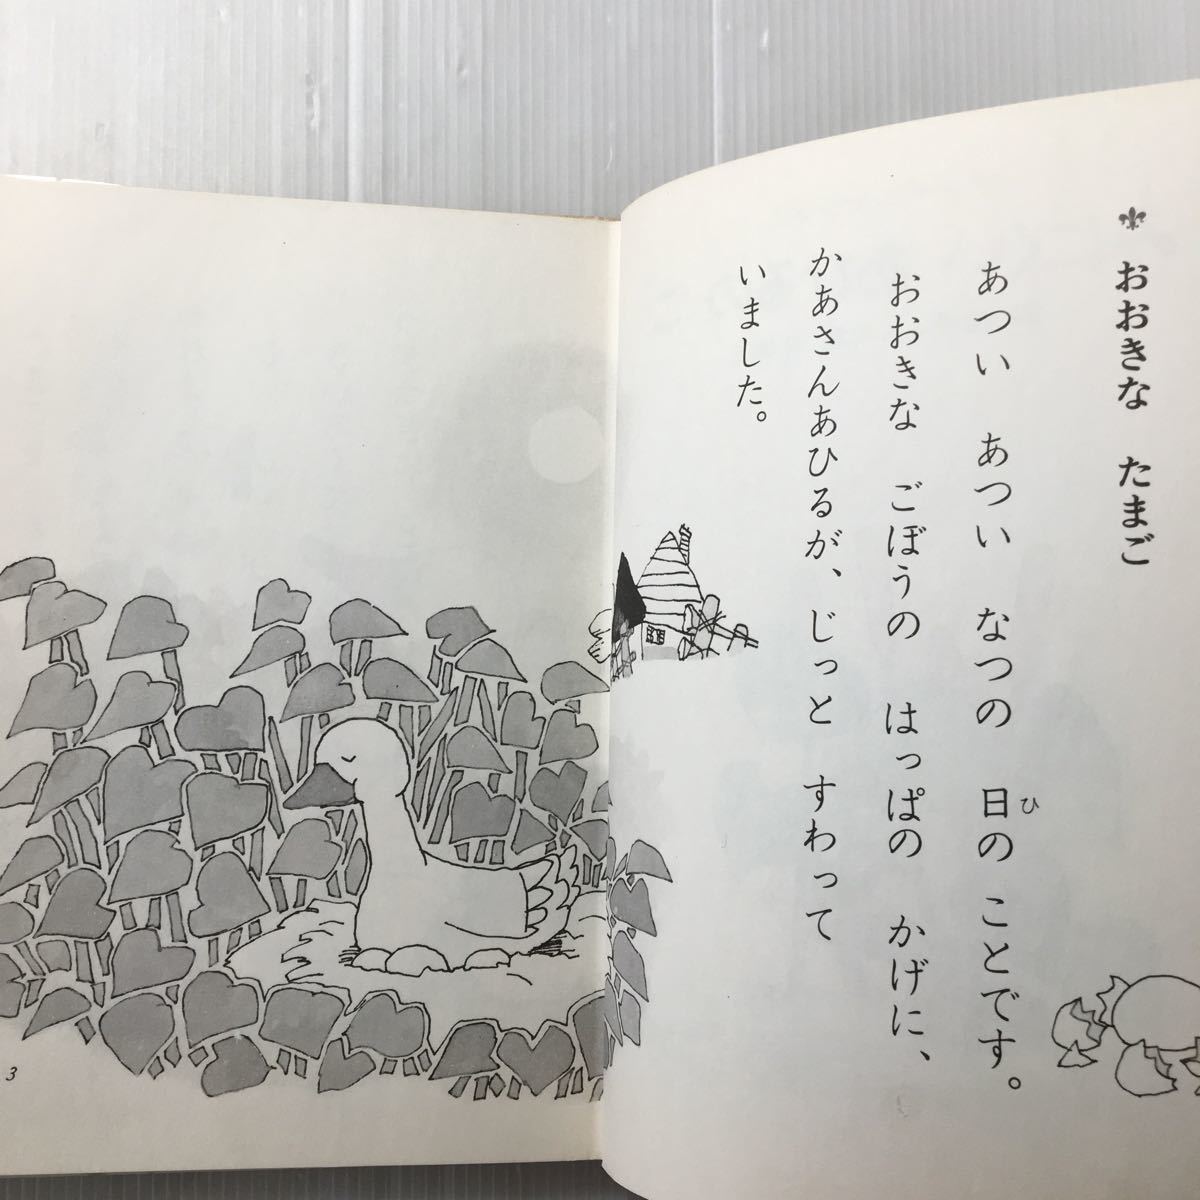 おおきな たまご
あつい あつい なつの 日の ことです。
ひ
おおきな ごぼうの はっぱの かげに、
かあさんあひるが、じっと すわって
いました。
3